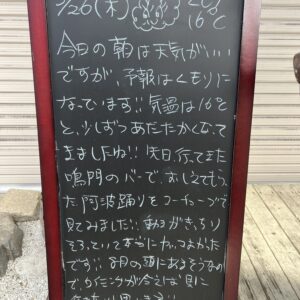 /26(木) 20℃
16℃
今日の朝は天気がいい
ですが、予報はくもりに
なっています!! 気温は16℃
と、少しずつあたたかくなって
きましたね!! 先日、行ってきた
鳴門のバーで、おしえてもらっ
た阿波踊りをユーチューブで
見てみました!! 動きがきっちり
そろっていて本当にカッコよかった
です!! 8月の頭にあるそうなの
で、タイミングが合えば見に